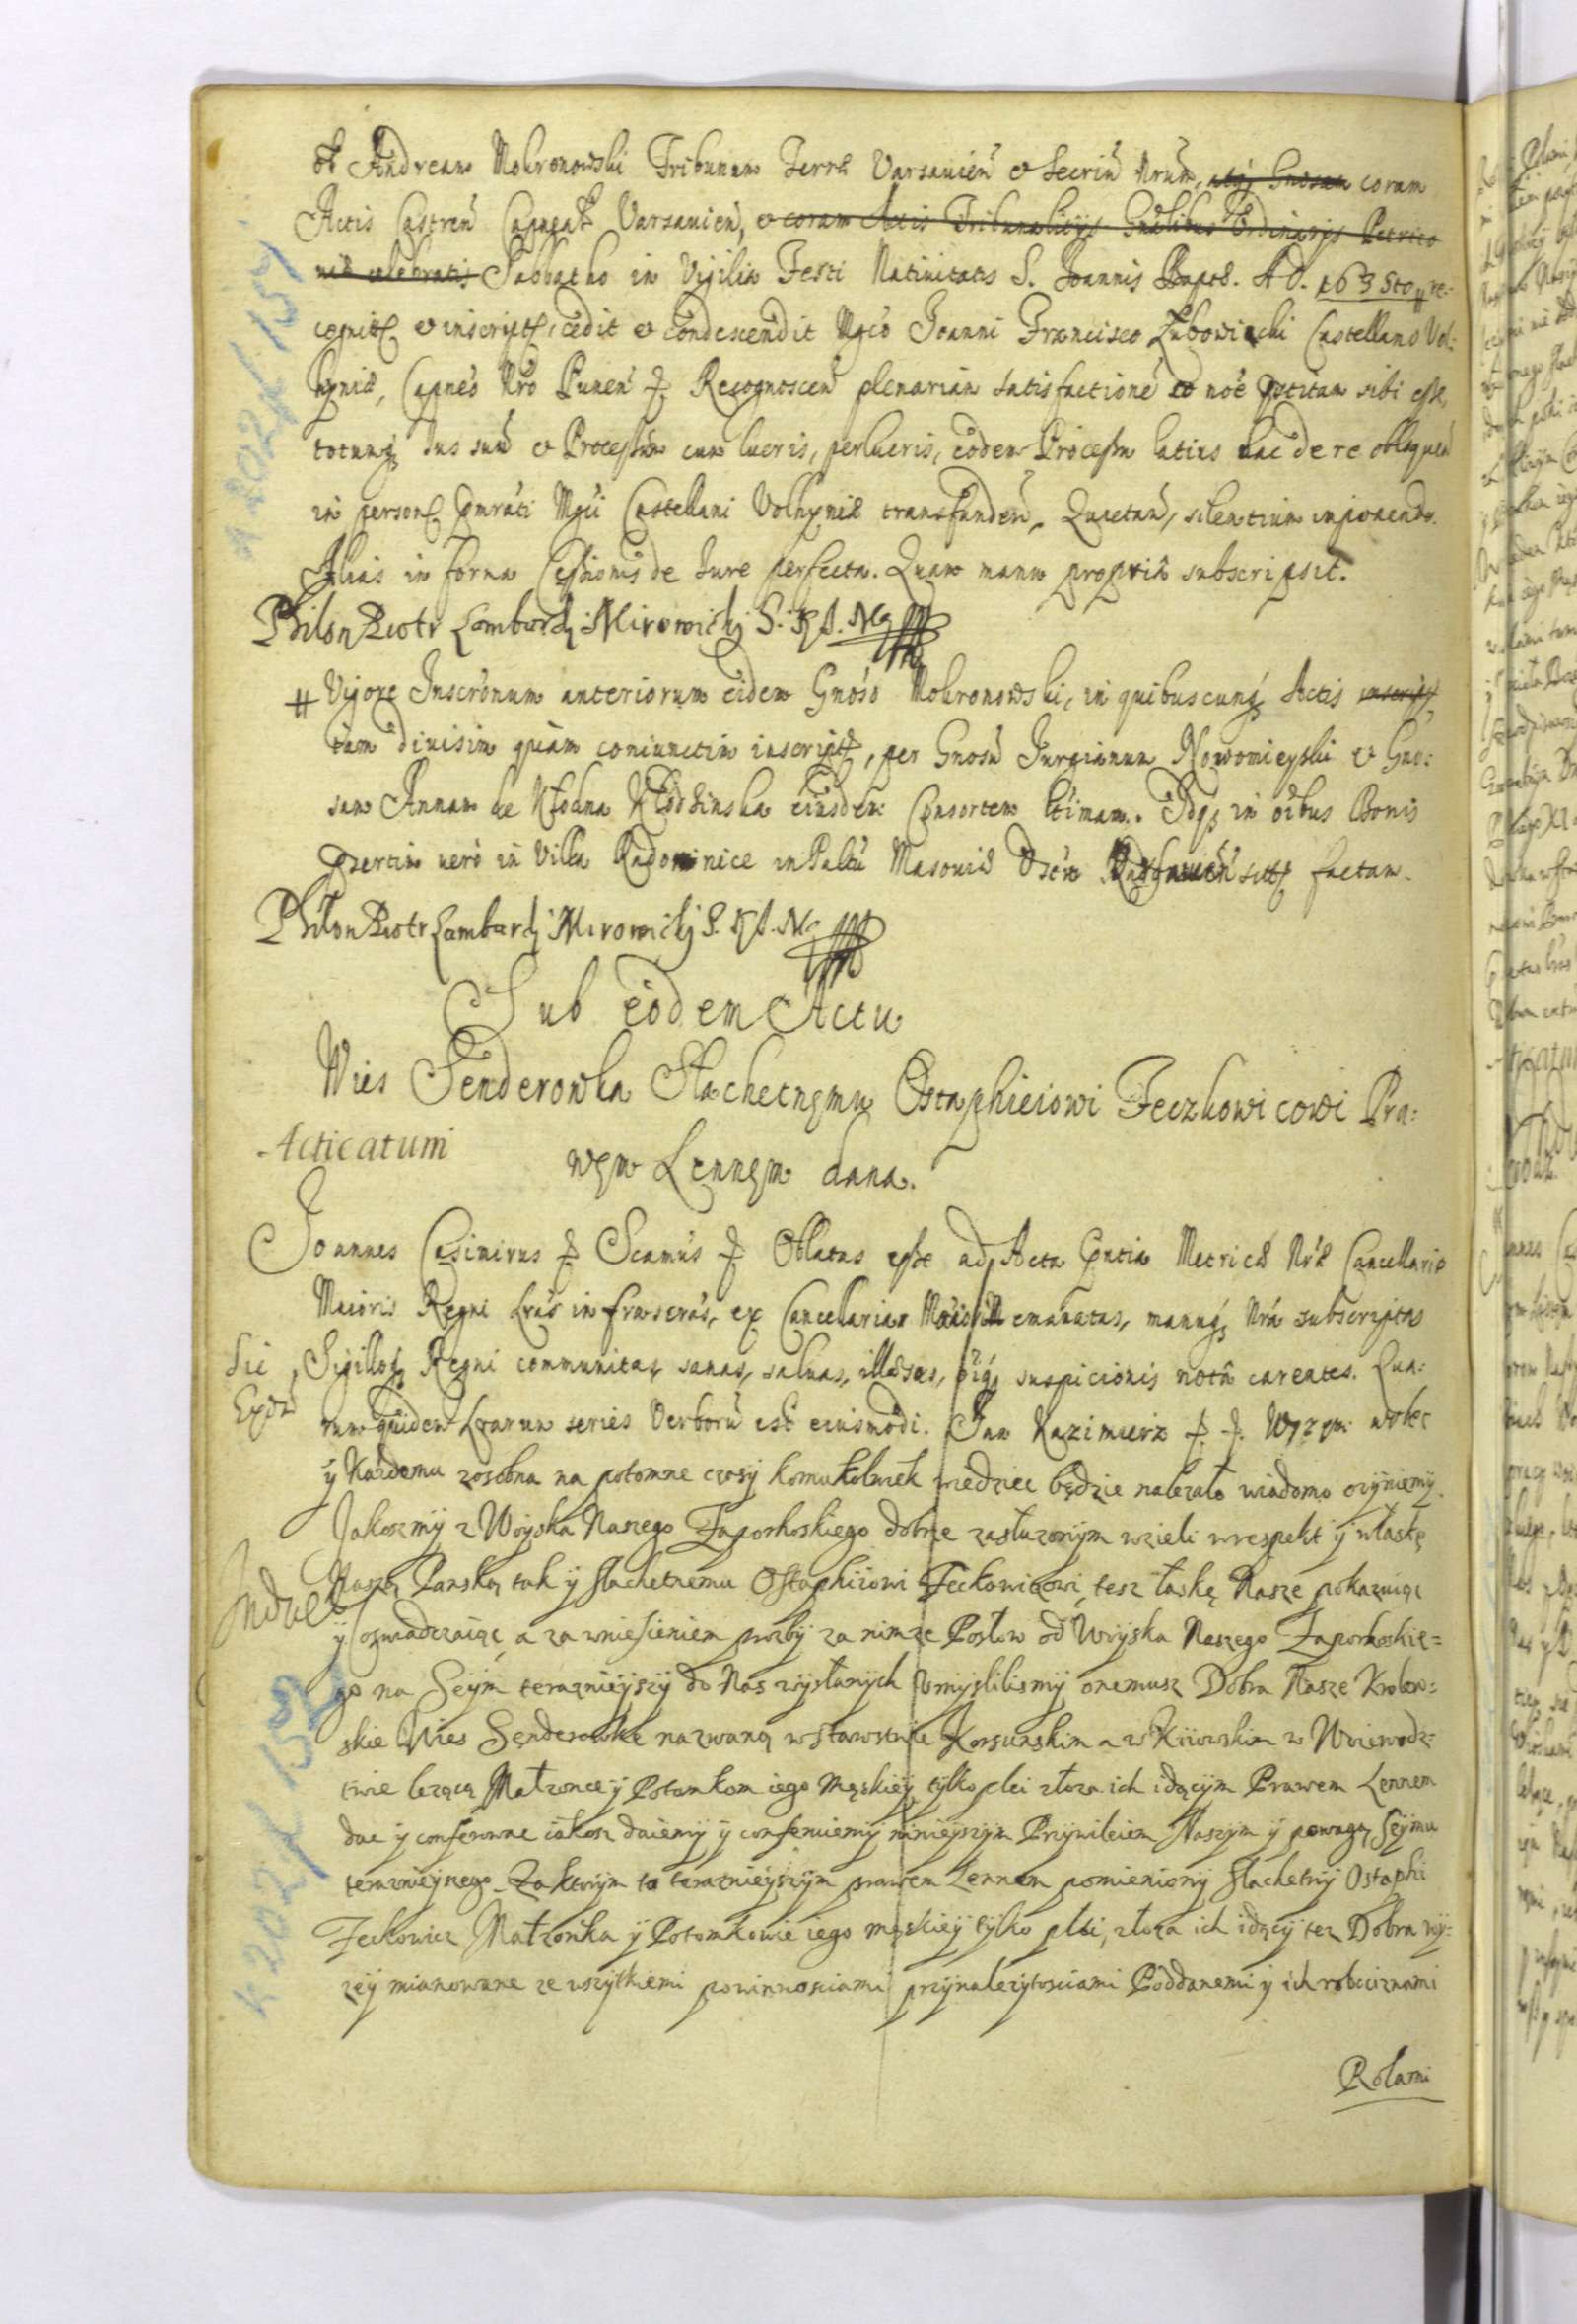 Andream Mokronowski Tribunum Terrae Varsavien̄ et Secriū Nrūm, coram
Actis Castren̄ Capneal̄ Varsavien̄, et coram Actis Tribunalitijs Gnālibus Ordinarijs Petrico
niæ celebratis Sabbatho in Vigilia Festi Natiuitatis S. Joannis Bapt. A D. 163 Sto re:
cognit et inscript, cedit et condescendit Mgco Joanni Francisco Lubowicki Castellano Vol:
hyniæ, Capneo Nro Recognoscen̄ plenariam satisfactione eo noe sibi esse,
totumq Jus suū et Processum cum lucris, perlucris, eodem Processu latius hac de re obloquen̄
in person Mgci Castellani Volhyniæ transfunden̄, Quietan̄, silentium imponendo.
Alias in forma Cessionis de Jure perfecta. Quam manu propria subscripsit.
Philon Piotr Lombardj Mirowickj S. K J. M
# Vigore Inscrōnum anteriorum eidem Gnoso Mokronowski, in quibuscunq Actis inscript
tam diuisim quàm coniunctim inscript, per Gnosū Nowomieyski et Gno:
sam Annam de Kłodna Kłodzinska eiusdem Consortem ltimam. Idq in oibus Bonis
psertim uerò in Villa Radominice in Paltū Masouiæ factam.
Philon Piotr Lambardj Mirowickj S. K J. M
Sub eodem Actu
Wies Senderowka Slachetnemu Ostaphieiowi Feczkowicowi Pra:
Acticatum
wem Lennym dana.
Joannes Casimirus Scamus Oblatas esse ad Acta Pntia Metricæ Nræ Cancellariæ
Maioris Regni Lrās infrascrās, ex Cancellaria Maiori emanatas, manuq Nrā subscriptas
Sic Sigilloq Regni communitas, sanas, saluas, illæsas, oiq suspicionis notâ carentes. Qua:
rum quidem Lrarum series Verborū est eiusmodi. Jan Kazimierz Wszem wobec
y Kazdemu zosobna na potomne czasy komukolwiek wiedziec będzie nalezało wiadomo czyniemy.
Jakoszmy z Woyska Naszego Zaporhoskiego dobrze zasłuzonym wzieli wrespekt y właskę
Naszą Panską tak y slachetnemu Ostaphiiowi Feckowicowi tesz łaskę Nasze pokazuiąc
y Oswiadczaiąc a za wniesieniem prozby za nimze Posłow od Woyska Naszego Zaporhoskie=
go na Seym terazniejszy do Nas wysłanych Umyslilismy onemusz Dobra Nasze Krolew=
skie Wies Senderowkę nazwaną w Starostwie Korsunskim a w Kiiowskim w Woiewodz=
twie lezącą Małzonce y Potomkom iego męskiey tylko płci złoza ich idącym Prawem Lennem
dac y conferowac iakosz daiemy y conferuiemy ninieyszym Przywileiem Naszym y powagą Seymu
terazniejszego. Za ktorym to terazniejszym prawem Lennem pomieniony slachetny Ostaphi
Feckowicz Małzonka y Potomkowie iego męskiey tylko płci, złoza ich idący tez Dobra wy=
zey mianowane ze wszytkiemi powinnosciami przynalezytosciami Poddanemi y ich robociznami
Rolami